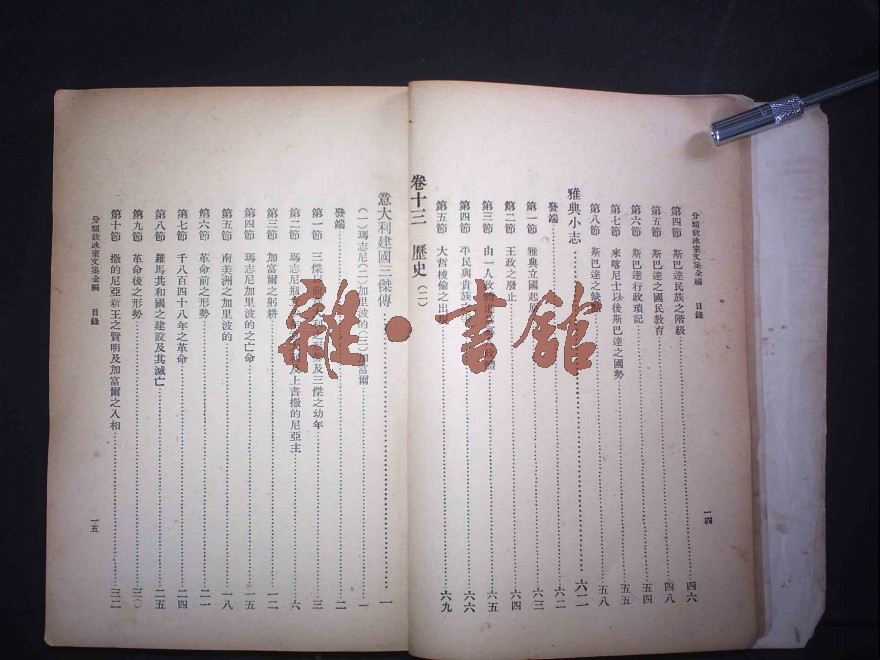 分類飲冰室文集全編　目錄
一四
第四節　斯巴達民族之階級……四六
第五節　斯巴達之國民教育……四八
第六節　斯巴達行政瑣記……五四
第七節　來喀尼士以後斯巴達之國勢……五五
第八節　斯巴達之缺……五八
雅典小志……六二
發端……六二
第一節　雅典立國起原……六三
第二節　王政之廢止……六四
第三節　由一人政……六五
第四節　平民與貴族……六六
第五節　大哲梭倫之出……六九
卷十三　歷史（二）
意大利建國三傑傳……一
（一）瑪志尼（二）加里波的（三）加富爾……一
發端……二
第一節　三傑以前……及三傑之幼年……三
第二節　瑪志尼……及上書撒的尼亞王……六
第三節　加富爾之躬耕……一二
第四節　瑪志尼加里波的之亡命……一五
第五節　南美洲之加里波的……一八
第六節　革命前之形勢……二一
第七節　千八百四十八年之革命……二四
第八節　羅馬共和國之建設及其滅亡……二五
第九節　革命後之形勢……三〇
第十節　撒的尼亞新王之賢明及加富爾之入相……三二
分類飲冰室文集全編　目錄
一五
雜·書館